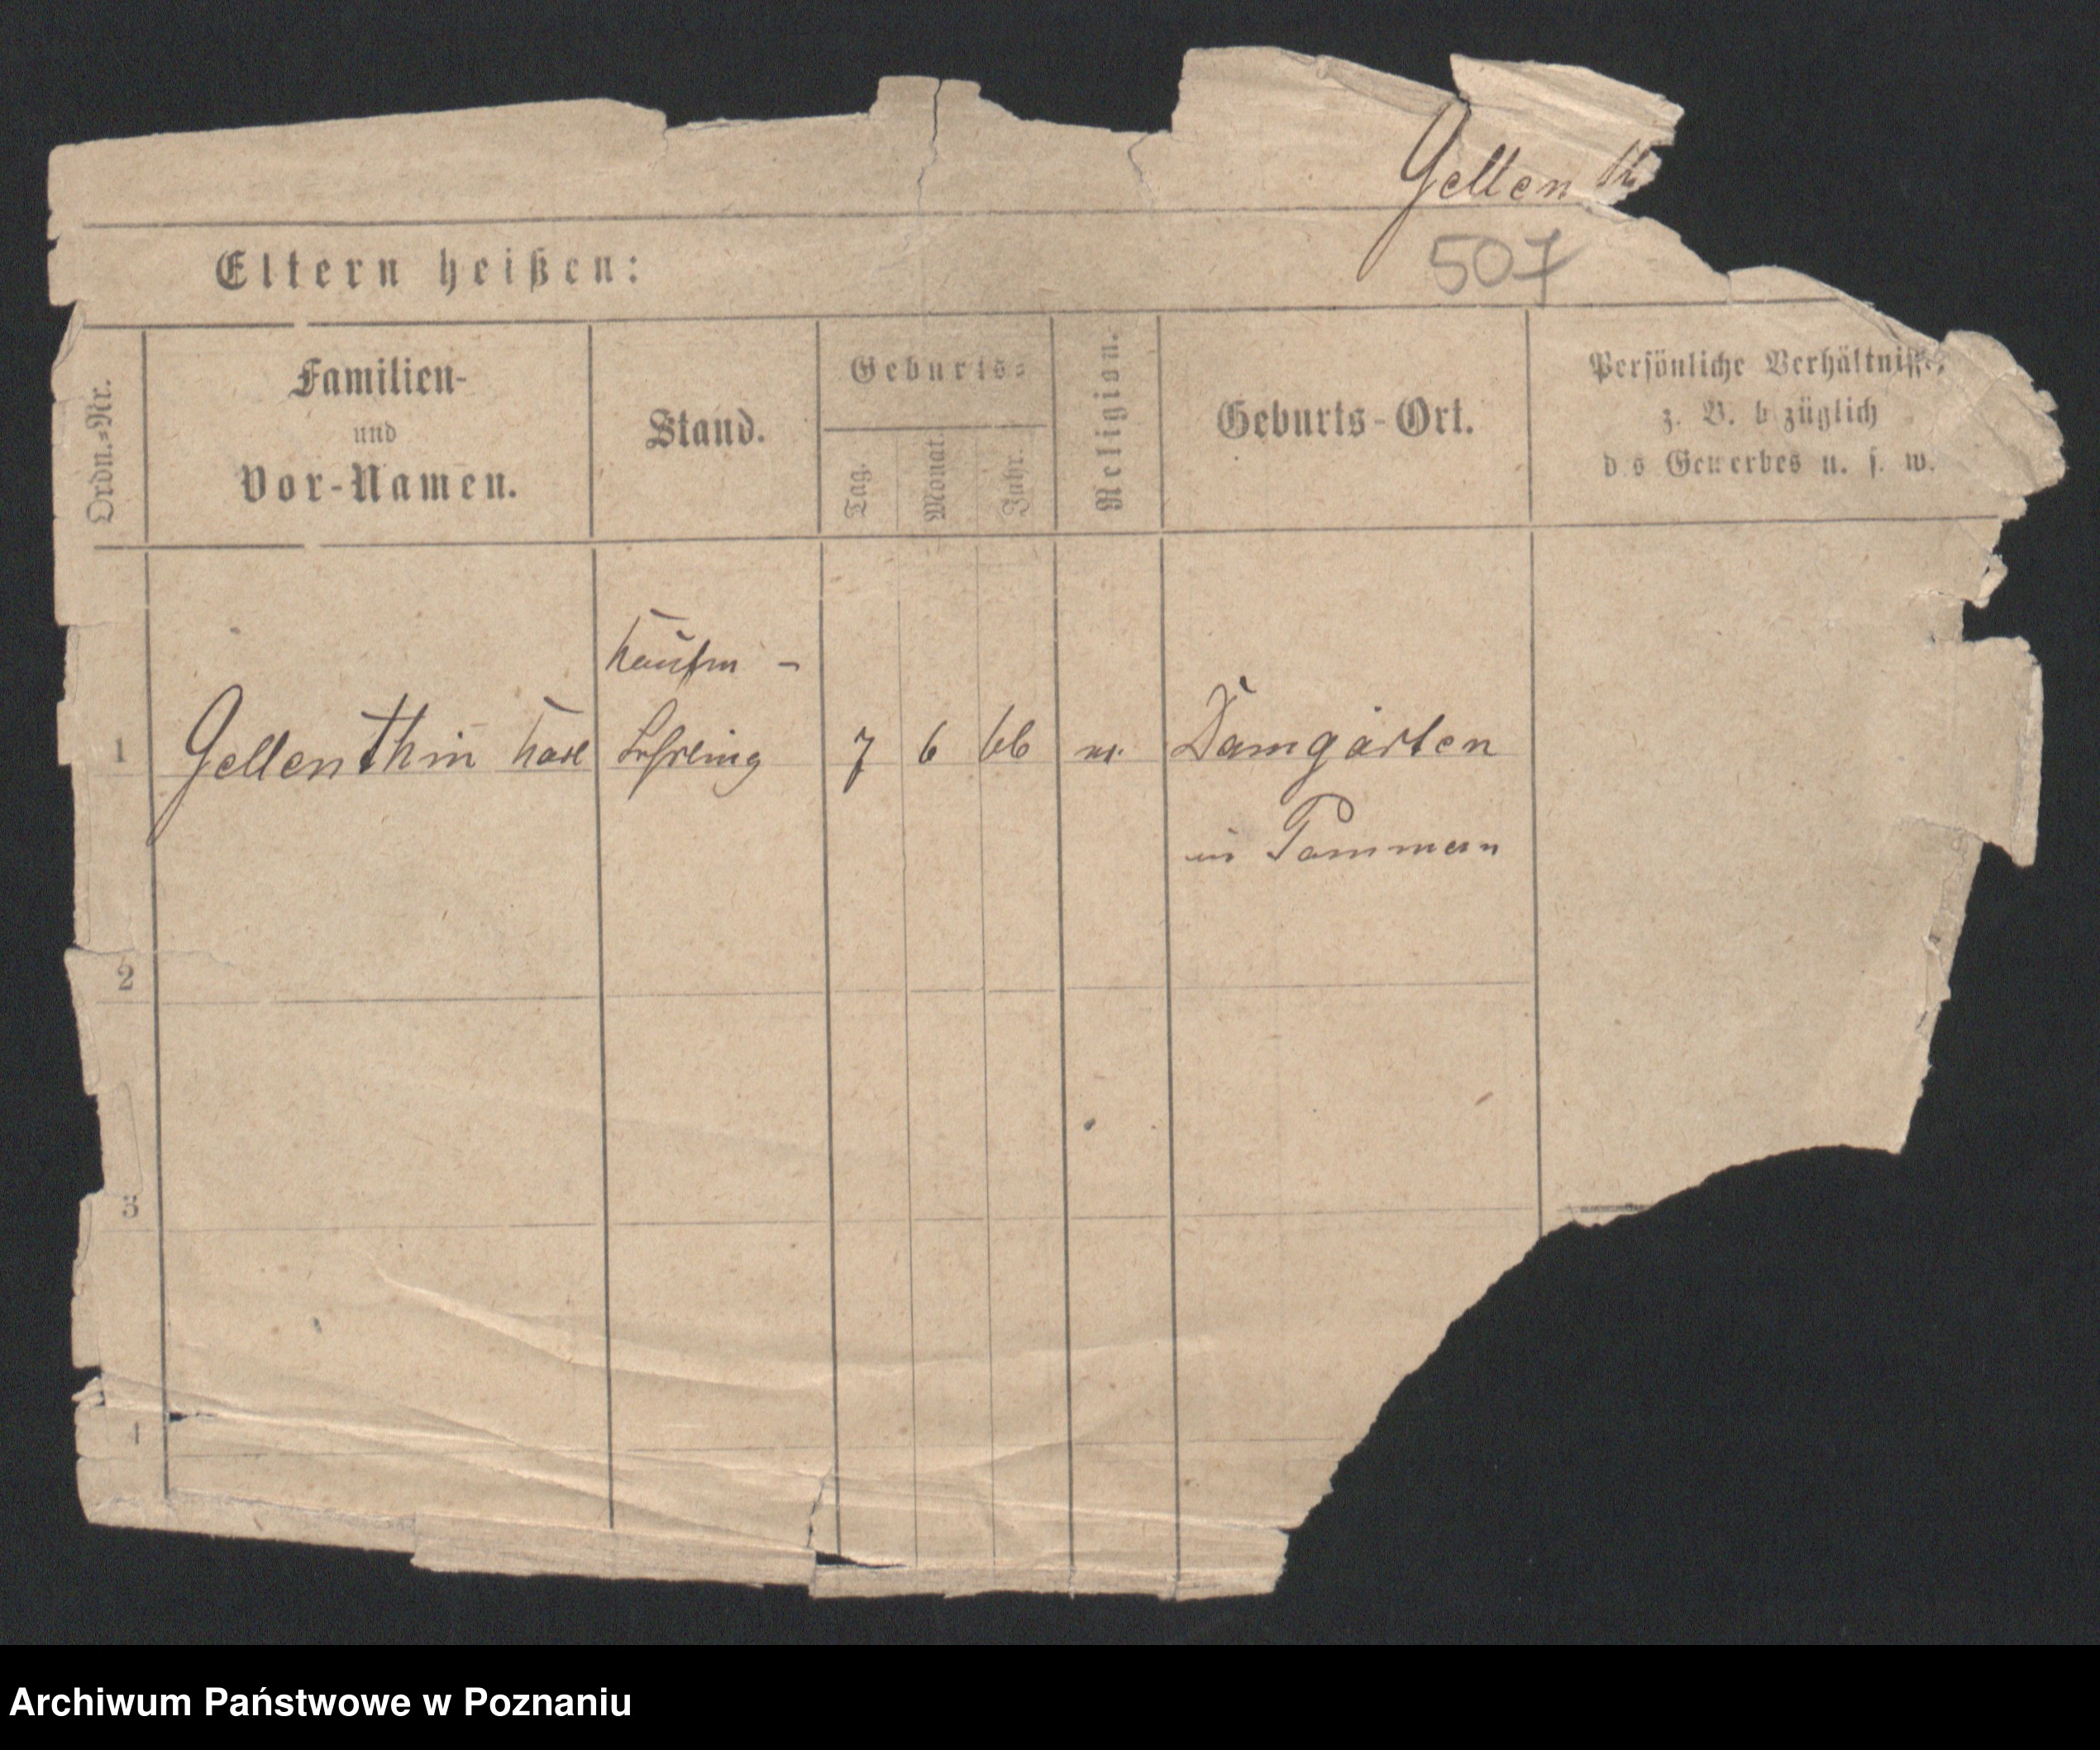 Gellenth
507
Eltern heißen:
Ordn.-Nr.
Familien-
und
Vor-Namen.
Stand.
Geburts-
Tag.
Monat.
Jahr.
Religion.
Geburts-Ort.
Persönliche Verhältnisse,
z. B. b züglich
d s Gewerbes u. s. w.
Kaufm -
1 Gellenthin Karl Lehrling 7 6 66 Damgarten
in Pommern
2
3
4
Archiwum Państwowe w Poznaniu